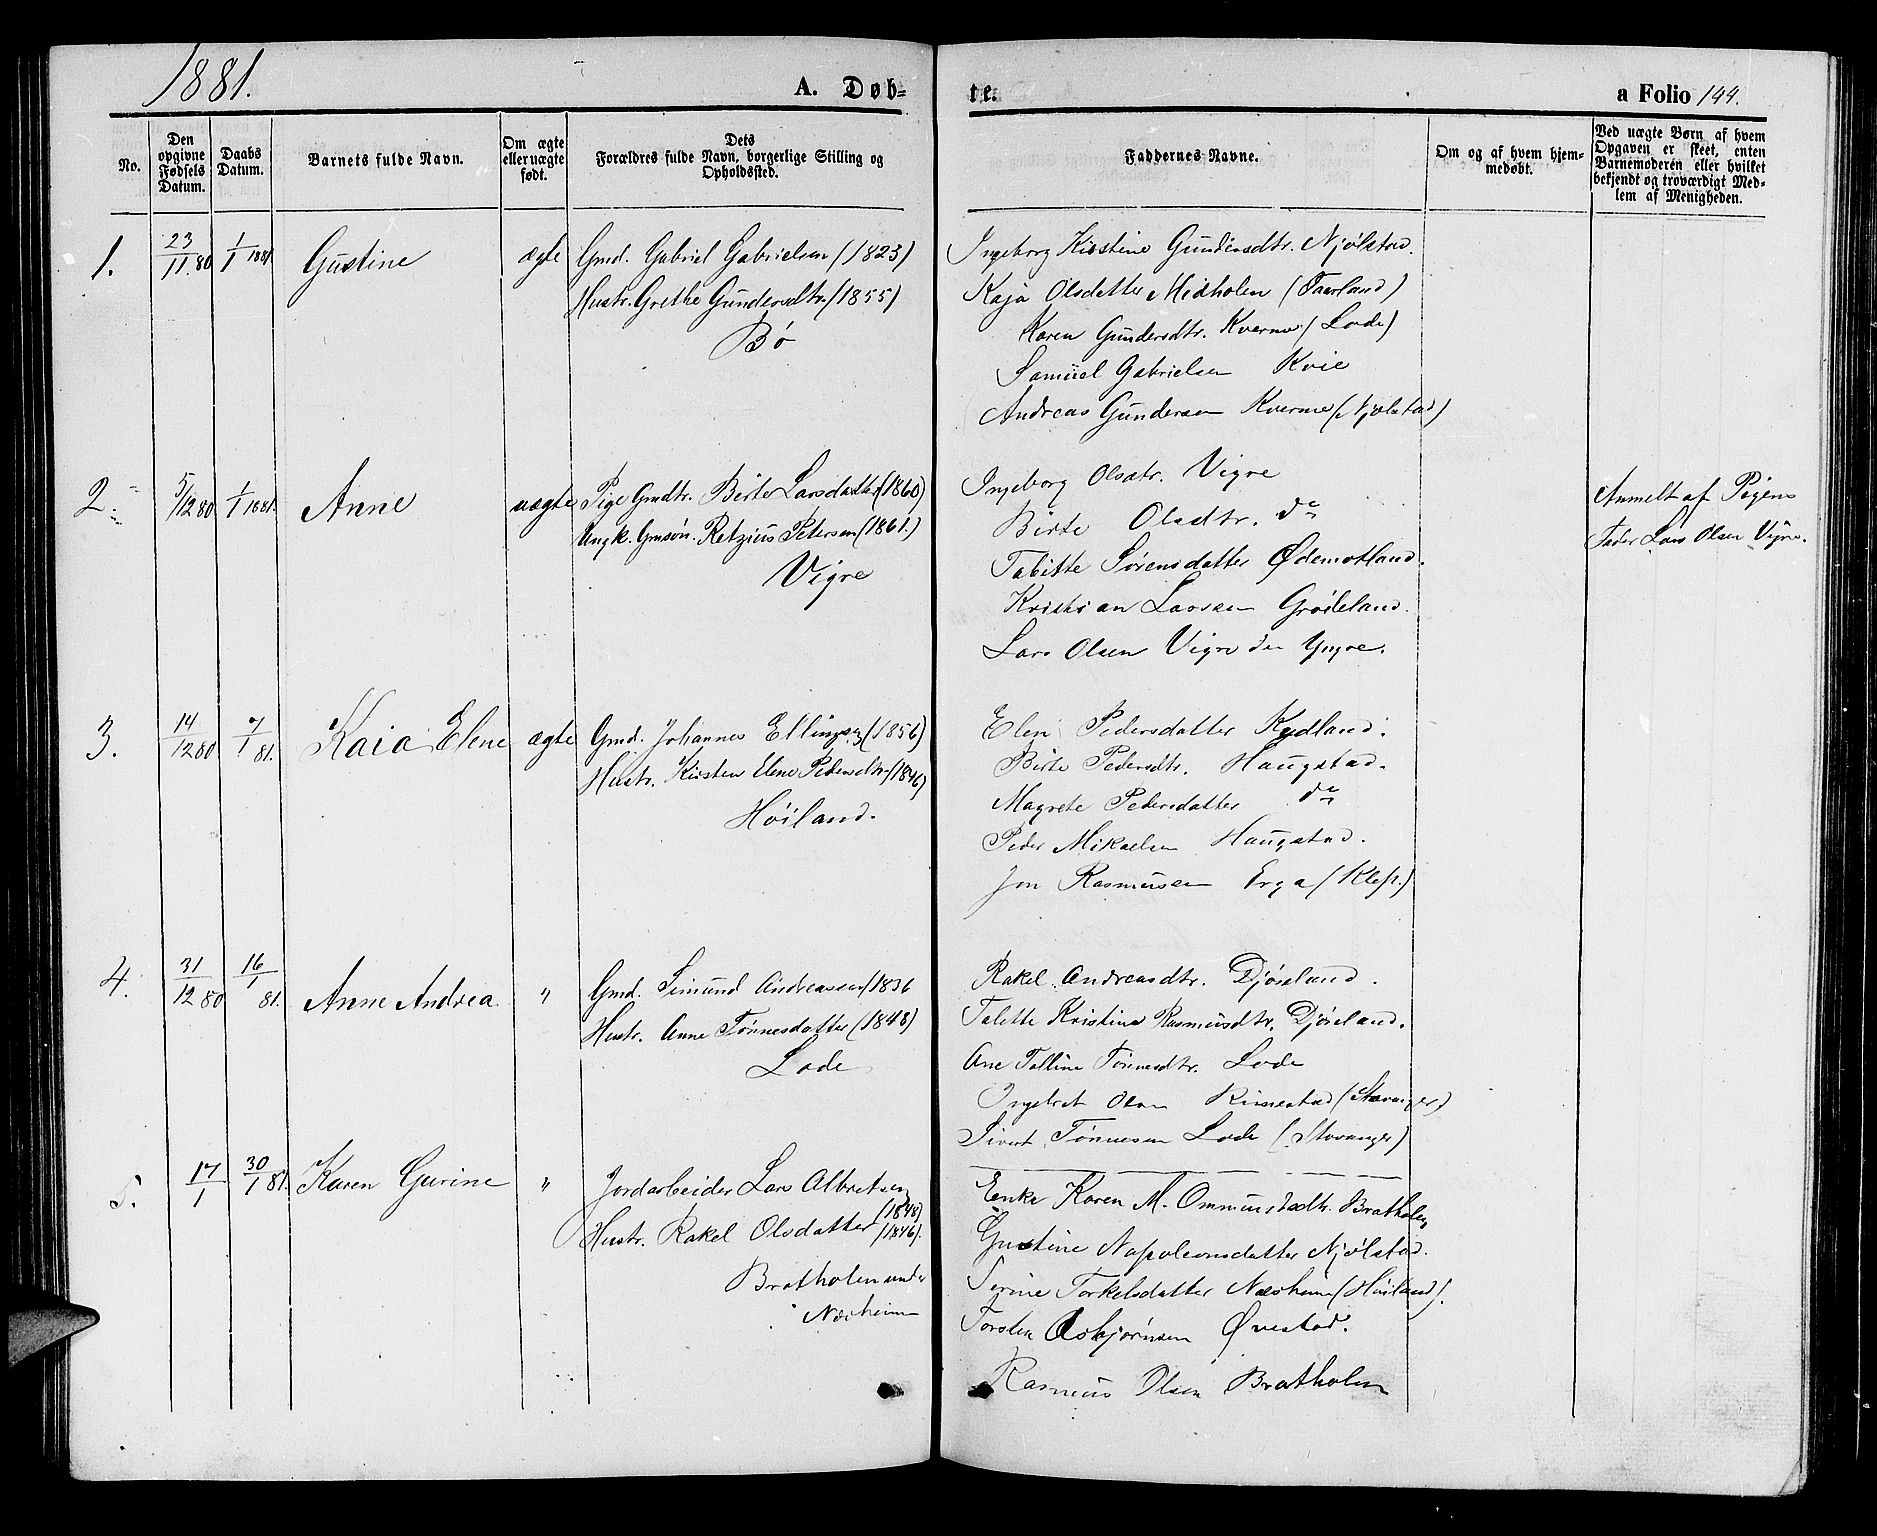 1881.
A. Døb-
te.
a Folio 144.
No.
Den opgivne Fødsels Datum.
Daabs Datum.
Barnets fulde Navn.
Om ægte eller uægte født.
Dets Forældres fulde Navn, borgerlige Stilling og Opholdssted.
Faddernes Navne.
Om og af hvem hjemmedøbt.
Ved uægte Børn af hvem Opgaven er skeet, enten Barnemoderen eller hvilket bekjendt og troværdigt Medlem af Menigheden.
1.
23/11.80
1/1 1881
Gustine
ægte
Gmd. Gabriel Gabrielsen (1823)
Hustr. Grethe Gundersdtr. (1855)
Bø
Ingeborg Kirstine Gundersdtr. Njølstad.
Kaja Olsdatter Midholen (Taarland)
Karen Gundersdtr. Kverme (Lode)
Samuel Gabrielsen Kvie
Andreas Gundersen Kverme (Njølstad)
2.
5/12 80
1/1 1881.
Anne
uægte
Pige Gmdtr. Birte Larsdatter (1860)
Ungk. Gmsøn. Retzius Petersen (1861.)
Vigre
Ingeborg Olsdtr. Vigre
Birte Olsdtr. do
Tabitte Sørensdatter Ødemotland.
Kristian Larsen Grødeland.
Lars Olsen Vigre den Yngre.
Anmeldt af Pigens
Fader Lars Olsen Vigre.
3.
14/12 80
7/1 81.
Kaia Elene
ægte
Gmd. Johannes Ellingsen (1856)
Hustr. Kirsten Elene Pedersdtr. (1846)
Høiland.
Elen Pedersdatter Kydland.
Birte Pedersdtr. Haugstad.
Magrete Pedersdatter do
Peder Mikaelsen Haugstad.
Jon Rasmusen Erga (Klep.)
4.
31/12 80
16/1 81.
Anne Andrea
"
Gmd. Simund Andreassen (1836
Hustr. Anne Tønnesdatter (1848)
Lode
Rakel Andreasdtr. Djøsland.
Talette Kristine Rasmusdtr. Djøsland.
Ane Talline Tønnesdtr. Lode
Ingebret Olsen Rimestad (Stavanger)
Sivert Tønnesen Lode (Stavanger)
5.
17/1
30/1 81.
Karen Gurine
"
Jordarbeider Lars Albretsen
(1848)
Hustr. Rakel Olsdatter (1846).
Bratholen under
Næsheim
Enke Karen M. Ommundsdtr. Bratholen
Gustine Napoleonsdatter Njølstad.
Serine Torkelsdatter Næsheim (Høiland).
Torsten Asbjørnsen Øvestad.
Rasmus Olsen Bratholen